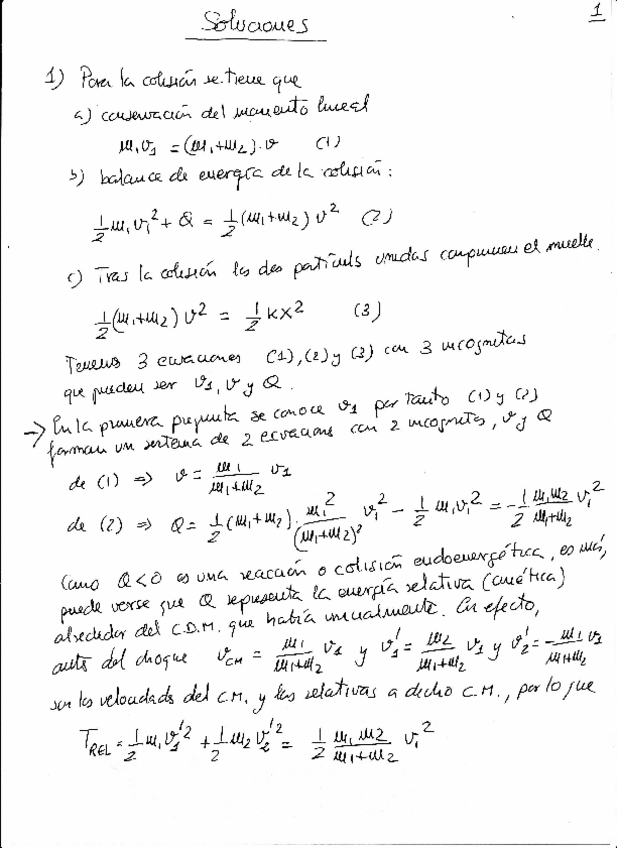 1
Soluciones
1) Para la colisión se tiene que
a) conservación del momento lineal
m₁v₁ = (m₁+m₂).v (1)
b) balance de energía de la colisión:
1/2 m₁v₁² + Q = 1/2 (m₁+m₂) v² (2)
c) Tras la colisión las dos partículs unidas comprimen el muelle.
1/2 (m₁+m₂) v² = 1/2 kx² (3)
Tenemos 3 ecuaciones (1), (2) y (3) con 3 incognitas
que pueden ser v₁, v y Q.
→ En la primera pregunta se conoce v₁ por tanto (1) y (2)
forman un sistema de 2 ecuaciones con 2 incognitas, v y Q
de (1) ⇒ v = m₁/(m₁+m₂) v₁
de (2) ⇒ Q = 1/2 (m₁+m₂) . m₁²/(m₁+m₂)² v₁² - 1/2 m₁v₁² = -1/2 m₁m₂/(m₁+m₂) v₁²
Como Q<0 es una reacción o colisión endoenergética, es más,
puede verse que Q representa la energía relativa (cinética)
alrededor del C.D.M. que había inicialmente. En efecto,
antes del choque v_CM = m₁/(m₁+m₂) v₁ y v₁' = m₂/(m₁+m₂) v₁ y v₂' = -m₁/(m₁+m₂) v₁
son las velocidades del C.M. y las relativas a dicho C.M., por lo que
T_REL = 1/2 m₁v₁'² + 1/2 m₂v₂'² = 1/2 m₁m₂/(m₁+m₂) v₁²